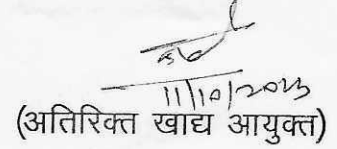 11/10/2023
(अतिरिक्त खाद्य आयुक्त)